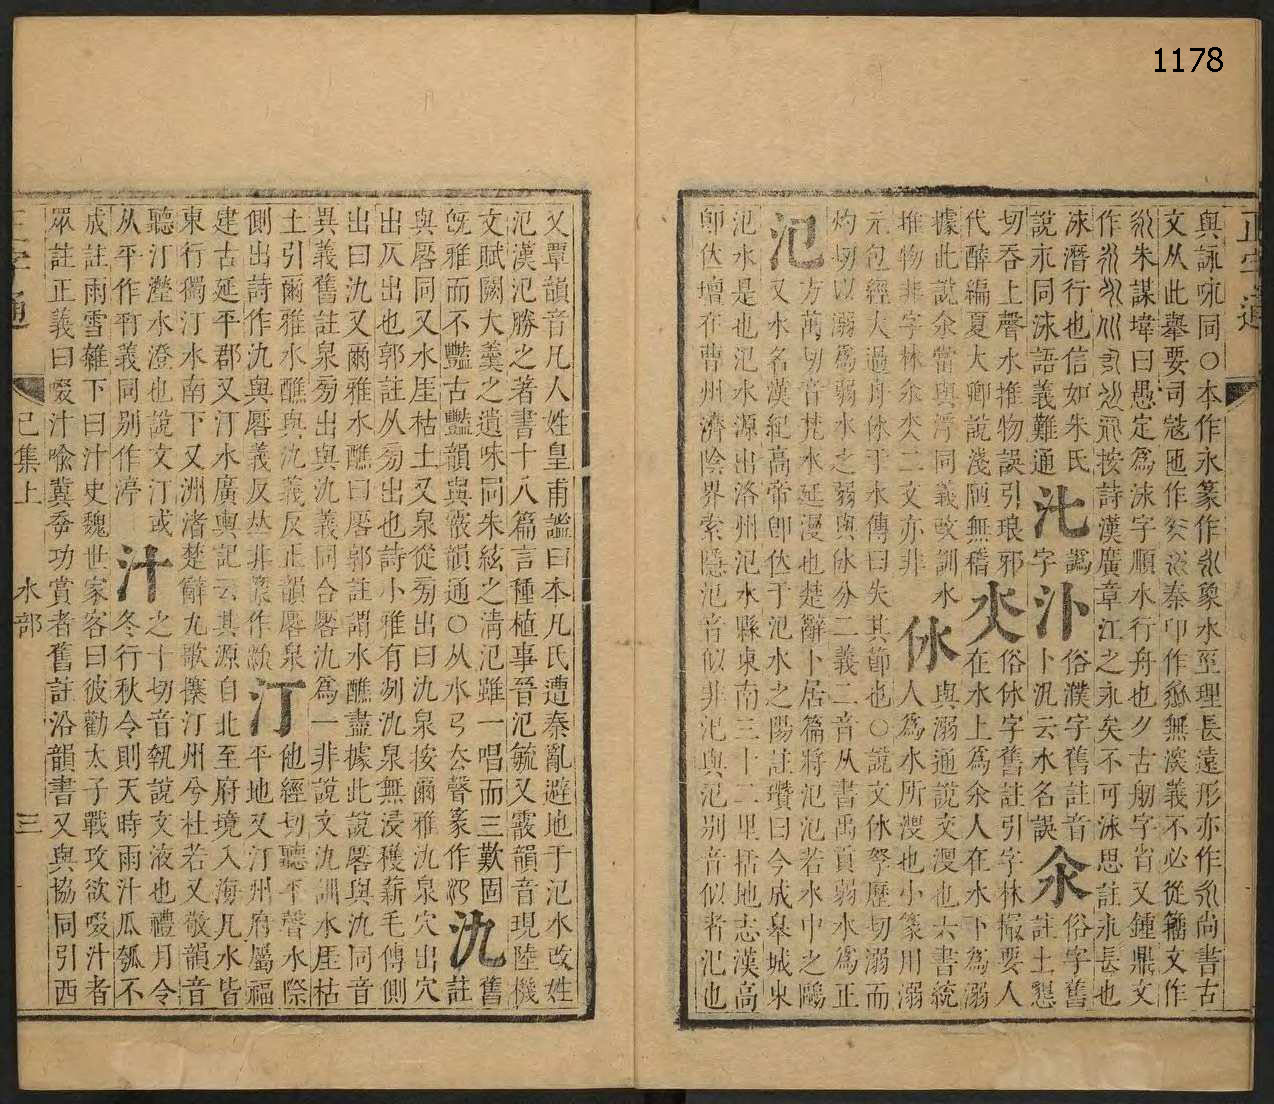 1178
正字通
與詠咏同○本作永篆作永象水巠理長遠形亦作永尚書古
文从此舉要司寇匜作秦印作無義不必從籒文作
朱謀㙔曰愚定爲泳字順水行舟也夕古舠字省又鍾鼎文
作按詩漢廣章江之永矣不可泳思註永長也
泳潛行也信如朱氏
說永同泳語義難通
汃
譌字
汴
俗濮字舊註音
卜汎云水名誤
汆
俗字舊
註土懇
切吞上聲水推物誤引琅邪
代醉編夏大卿說淺陋無稽
氼
俗㲻字舊註引字林撮要人
在水上爲汆人在水下爲溺
據此說汆當與浮同義攺訓水
推物非字林汆氼二文亦非
㲻
與溺通說文沒也六書統
人爲水所溲也小篆用溺
元包經大過舟㲻于水傳曰失其節也○說文㲻孥歷切溺而
灼切以溺爲弱水之弱與㲻分二義二音从書禹貢弱水爲正
氾
方萬切音梵水延漫也楚辭卜居篇將氾氾若水中之鷗
又水名漢紀高帝卽位于氾水之陽註瓚曰今成皋城東
氾水是也氾水源出洛州氾水縣東南三十二里括地志漢高
卽位壇在曹州濟陰界索隱氾音似非汜與氾别音似者汜也
又覃韻音凡人姓皇甫謐曰本凡氏遭秦亂避地于氾水改姓
氾漢氾勝之著書十八篇言種植事晉氾毓又霰韻音現陸機
文賦闕大羹之遺味同朱絃之淸氾雖一唱而三歎固
旣雅而不豔古豔韻與霰韻通○从水㔾厺聲篆作
氿
舊
註
與厬同又水厓枯土又泉從旁出曰氿泉按爾雅氿泉穴出穴
出仄出也郭註从旁出也詩小雅有冽氿泉無浸穫薪毛傳側
出曰氿又爾雅水醮曰厬郭註謂水醮盡據此說厬與氿同音
異義舊註泉旁出與氿義同合厬氿爲一非說文氿訓水厓枯
土引爾雅水醮與氿義反正韻厬泉
側出詩作氿與厬義反丛非篆作
汀
他經切聽平聲水際
平地又汀州府屬福
建古延平郡又汀水廣輿記云其源自北至府境入海凡水皆
東行獨汀水南下又洲渚楚辭九歌搴汀州兮杜若又敬韻音
聽汀瀅水澄也說文汀或
从平作㳤義同别作渟
汁
之十切音執說文液也禮月令
冬行秋令則天時雨汁瓜瓠不
成註雨雪雜下曰汁史魏世家客曰彼勸太子戰攻欲啜汁者
眾註正義曰啜汁喻冀季功賞者舊註沿韻書又與協同引西
正字通
巳集上
水部
三